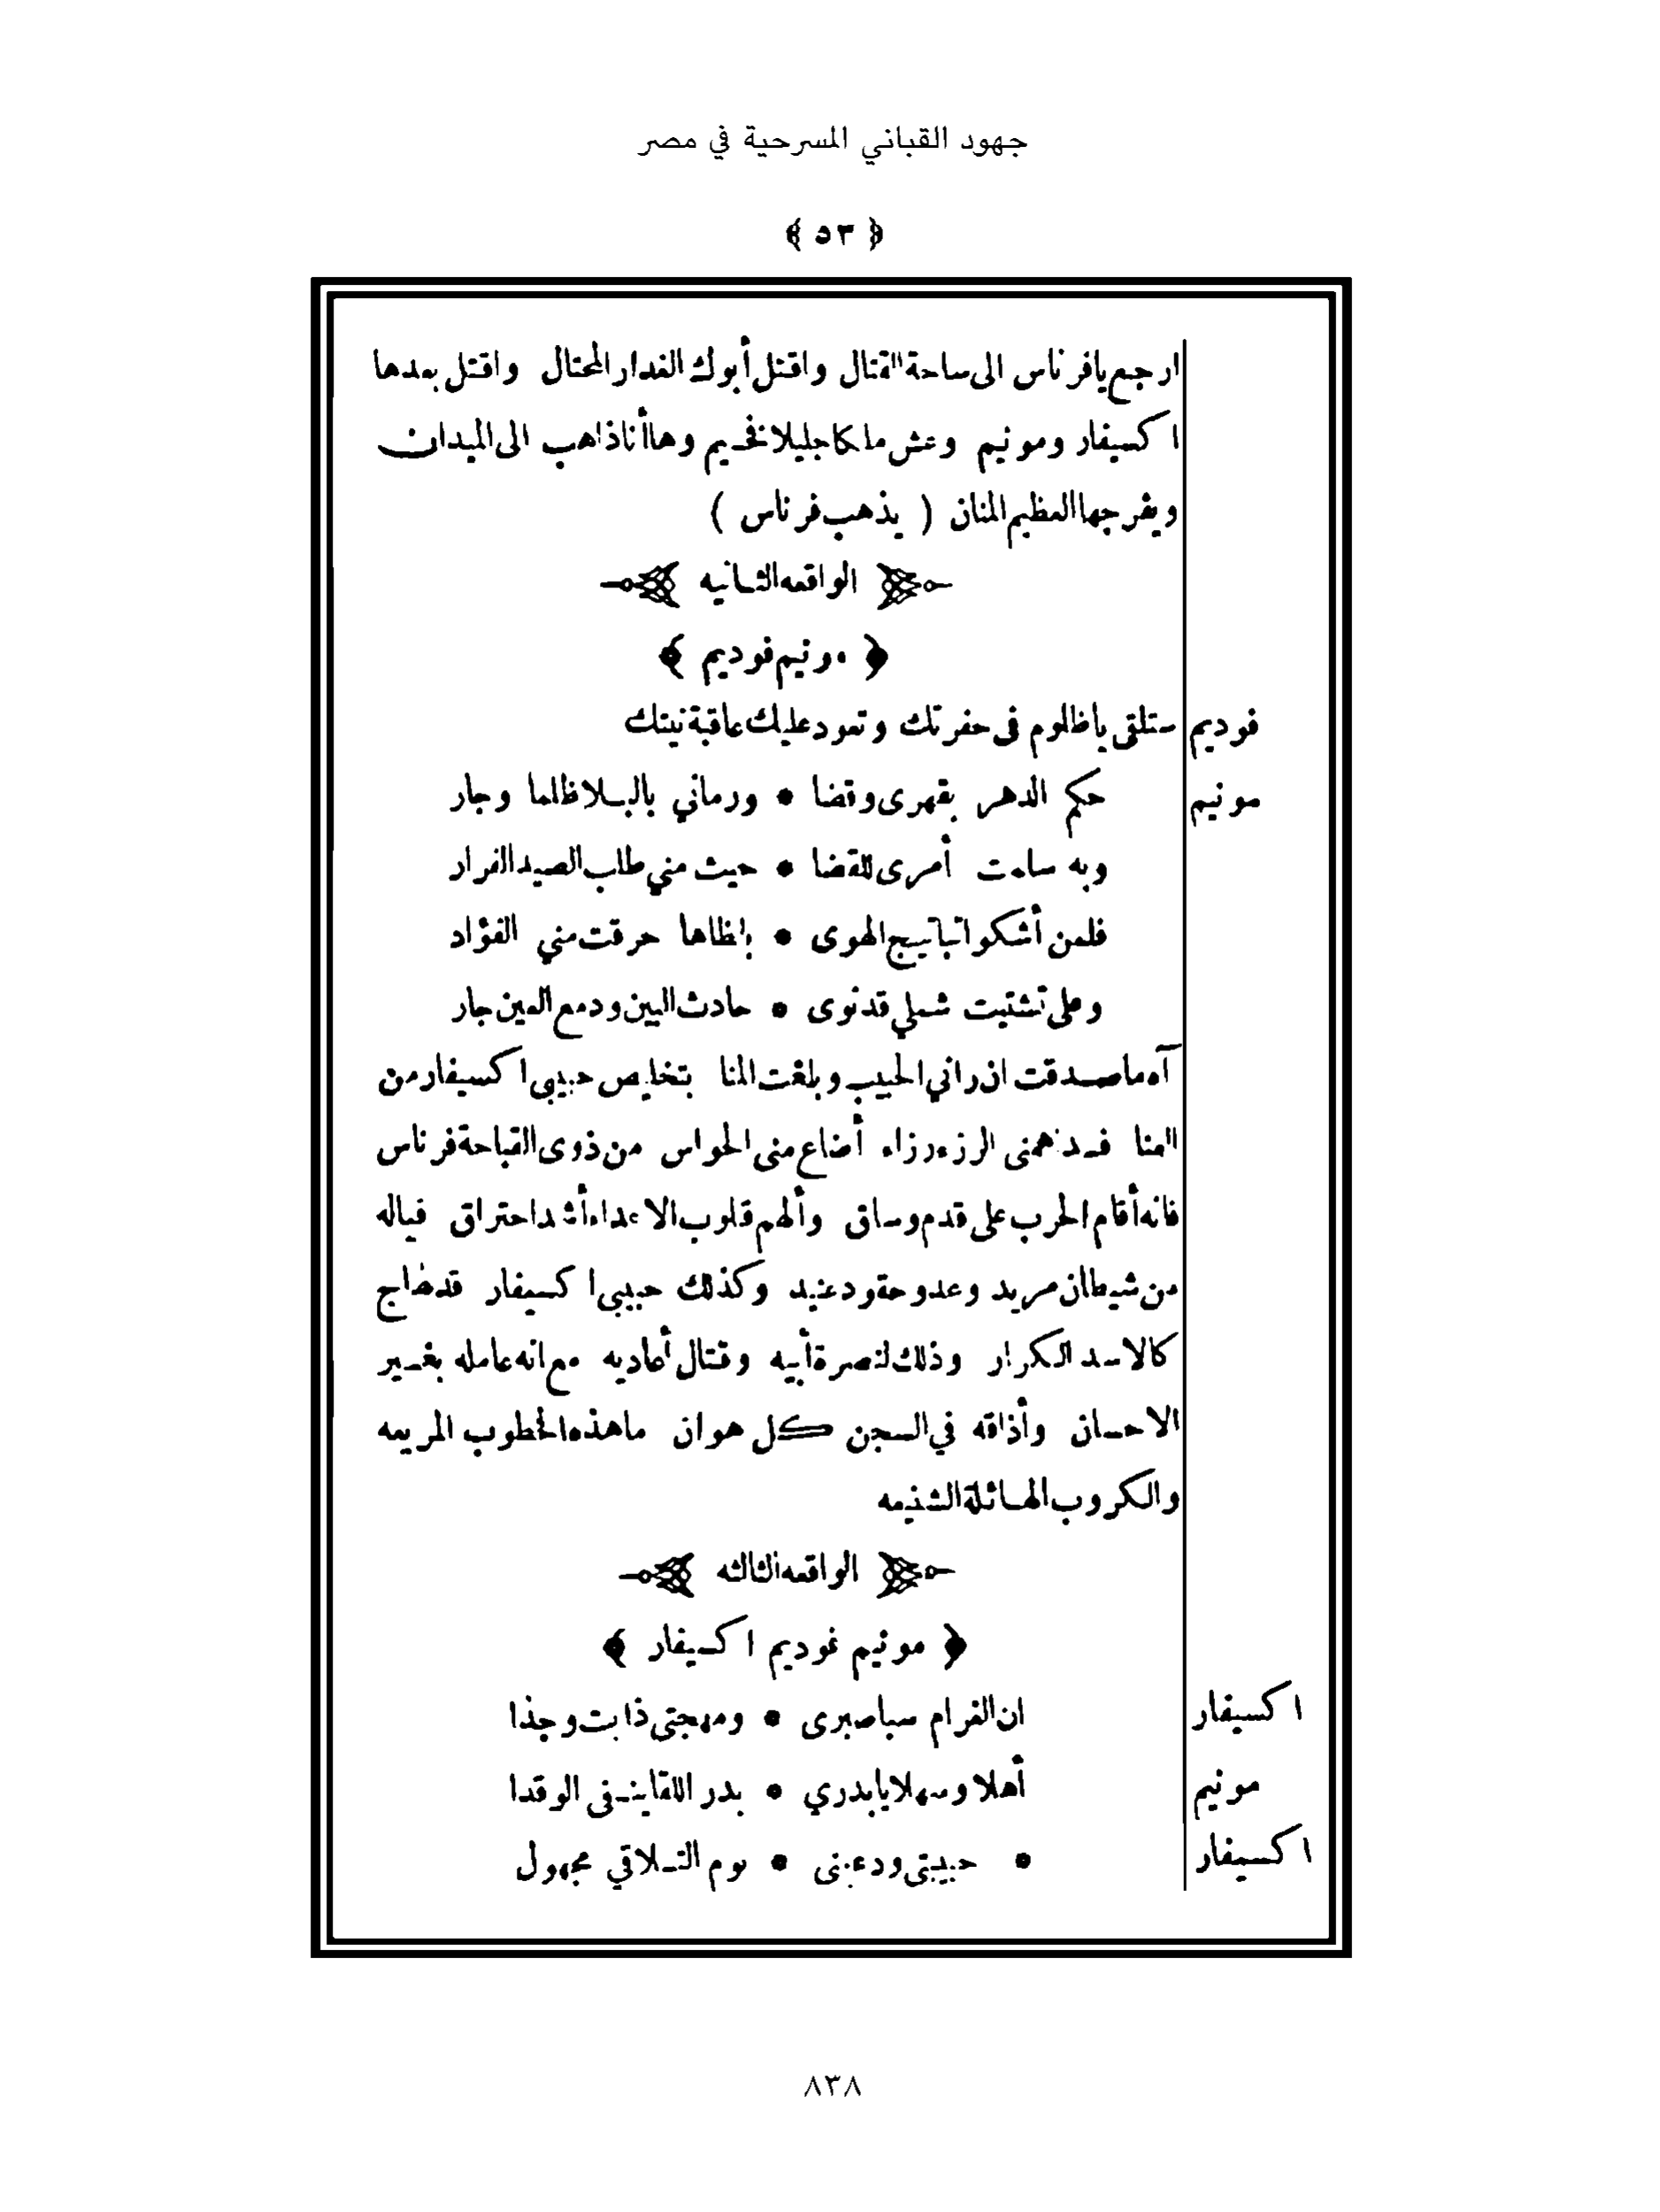 جهود القباني المسرحية في مصر
﴿ ٥٣ ﴾
ارجع يافرناس الى ساحة القتال واقتل أبوك الغدار المحتال واقتل بعدها
اكسيفار ومونيم وعش ملكا جليلا فخيم وها أنا ذاهب الى الميدان
ويفرجها العظيم المنان ( يذهب فرناس )
الواقعه الثانيه
﴿ مونيم فوديم ﴾
فوديم ستلقى ياظلوم فى حفرتك وتعود عليك عاقبة نيتك
مونيم حكم الدهر بقهرى وقضا * ورماني بالبلا ظلما وجار
وبه سلمت أمرى للقضا * حيث مني طلب الصيد الفرار
فلمن أشكو اتبآييج الهوى * بلظاها حرقت مني الفؤاد
وعلى تشتيت شملي قد نوى * حادث البين ودمع العين جار
آه ماصدقت ان راني الحبيب وبلغت المنا بتخليص حبيبى اكسيفار من
العنا فدهمنى الرزء رزاء أضاع منى الحواس من ذوى القباحة فرناس
فانه أقام الحرب على قدم وساق وألهم قلوب الاعداء أشد احتراق فياله
من شيطان مريد وعدو حقود عنيد وكذلك حبيبى اكسيفار قد هاج
كالاسد الكرار وذلك لنصرة أبيه وقتال أعاديه مع انه عامله بغير
الاحسان وأذاقه في السجن كل هوان ماهذه الخطوب المريعه
والكروب الهائلة الشنيعه
الواقعه الثالثه
﴿ مونيم فوديم اكسيفار ﴾
اكسيفار ان الغرام سبا صبرى * ومهجتى ذابت وجذا
مونيم أهلا وسهلا يابدري * بدر اللقا ينفى الوقدا
اكسيفار * حبيبتى ودعينى * يوم التلاقي مجهول
٨٣٨